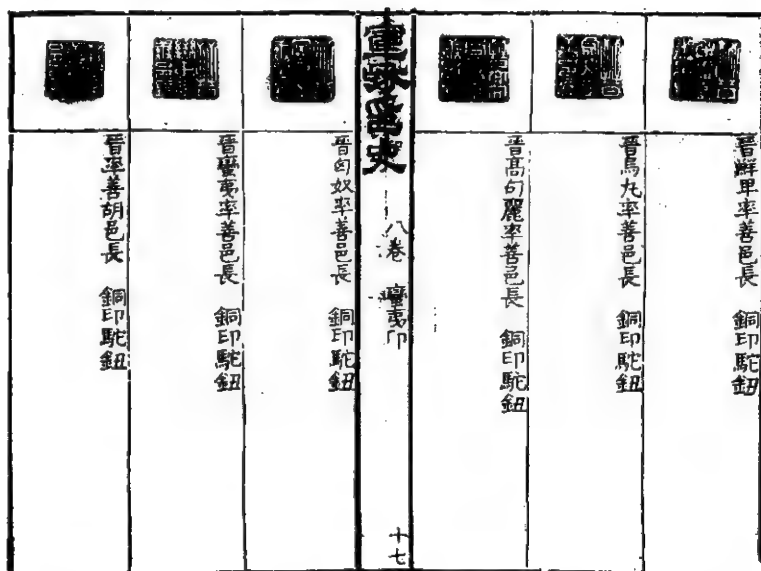 晉鮮卑率善邑長 銅印駝鈕
晉烏丸率善邑長 銅印駝鈕
晉高句麗率善邑長 銅印駝鈕
宣和印史 八卷 蠻夷印 十七
晉匈奴率善邑長 銅印駝鈕
晉蠻夷率善邑長 銅印駝鈕
晉率善胡邑長 銅印駝鈕